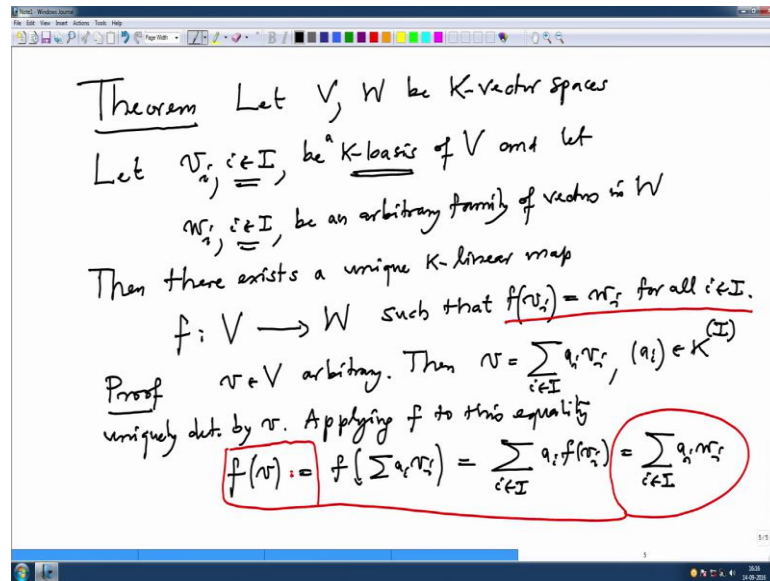 Note1 - Windows Journal
File Edit View Insert Actions Tools Help
Page Width
B I
Theorem Let V, W be K-vector spaces
Let v_i, i∈I, be a K-basis of V and let
w_i, i∈I, be an arbitrary family of vectors in W
Then there exists a unique K-linear map
f : V ⟶ W such that f(v_i) = w_i for all i∈I.
Proof v∈V arbitrary. Then v = ∑_{i∈I} a_i v_i, (a_i) ∈ K^{(I)}
uniquely det. by v. Applying f to this equality
f(v) := f(∑ a_i v_i) = ∑_{i∈I} a_i f(v_i) = ∑_{i∈I} a_i w_i
5/5
5
16:16
14-09-2016